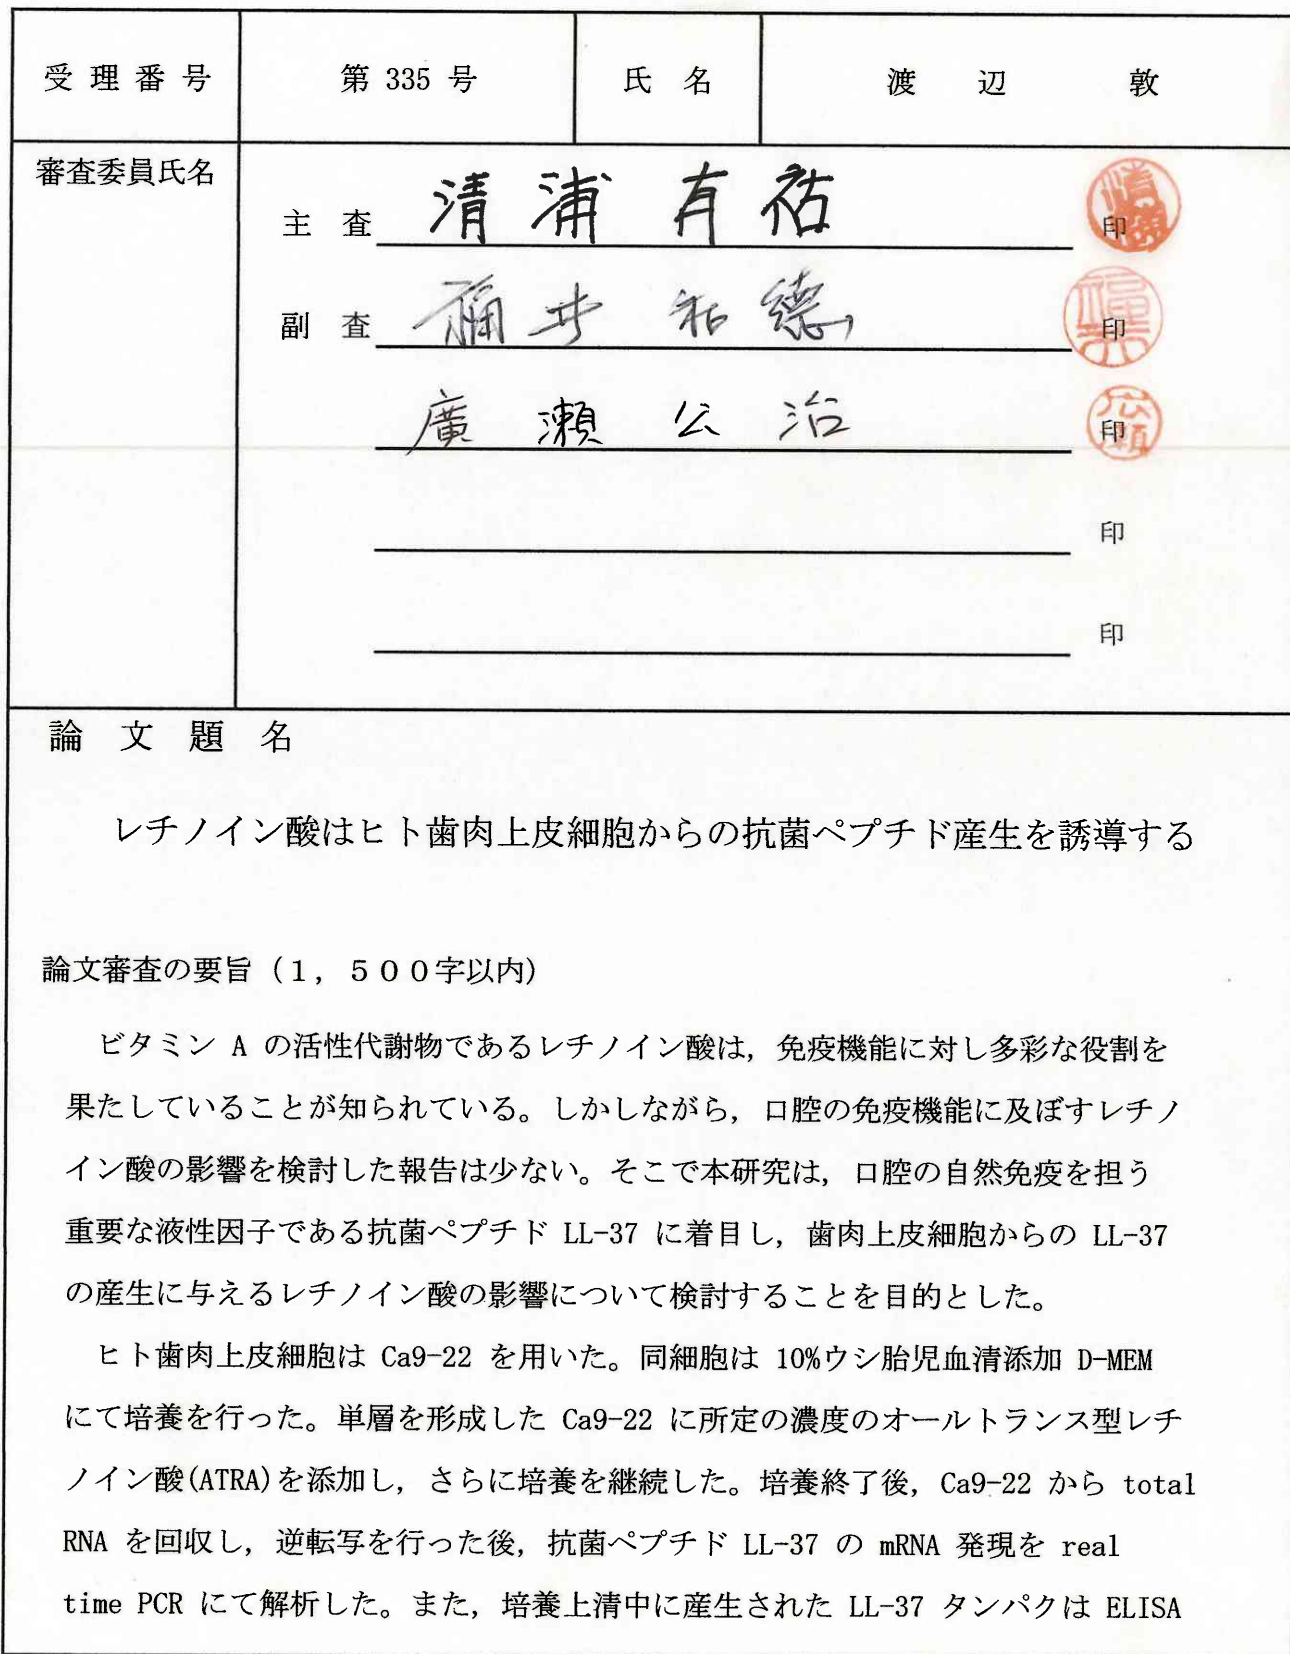 受理番号 第 335 号 氏名 渡辺 敦
審査委員氏名
主査 清浦有祐 印
副査 福井和徳 印
廣瀬公治 印
印
印
論文題名
レチノイン酸はヒト歯肉上皮細胞からの抗菌ペプチド産生を誘導する
論文審査の要旨（1，500字以内）
ビタミン A の活性代謝物であるレチノイン酸は，免疫機能に対し多彩な役割を
果たしていることが知られている。しかしながら，口腔の免疫機能に及ぼすレチノ
イン酸の影響を検討した報告は少ない。そこで本研究は，口腔の自然免疫を担う
重要な液性因子である抗菌ペプチド LL-37 に着目し，歯肉上皮細胞からの LL-37
の産生に与えるレチノイン酸の影響について検討することを目的とした。
ヒト歯肉上皮細胞は Ca9-22 を用いた。同細胞は 10%ウシ胎児血清添加 D-MEM
にて培養を行った。単層を形成した Ca9-22 に所定の濃度のオールトランス型レチ
ノイン酸(ATRA)を添加し，さらに培養を継続した。培養終了後，Ca9-22 から total
RNA を回収し，逆転写を行った後，抗菌ペプチド LL-37 の mRNA 発現を real
time PCR にて解析した。また，培養上清中に産生された LL-37 タンパクは ELISA